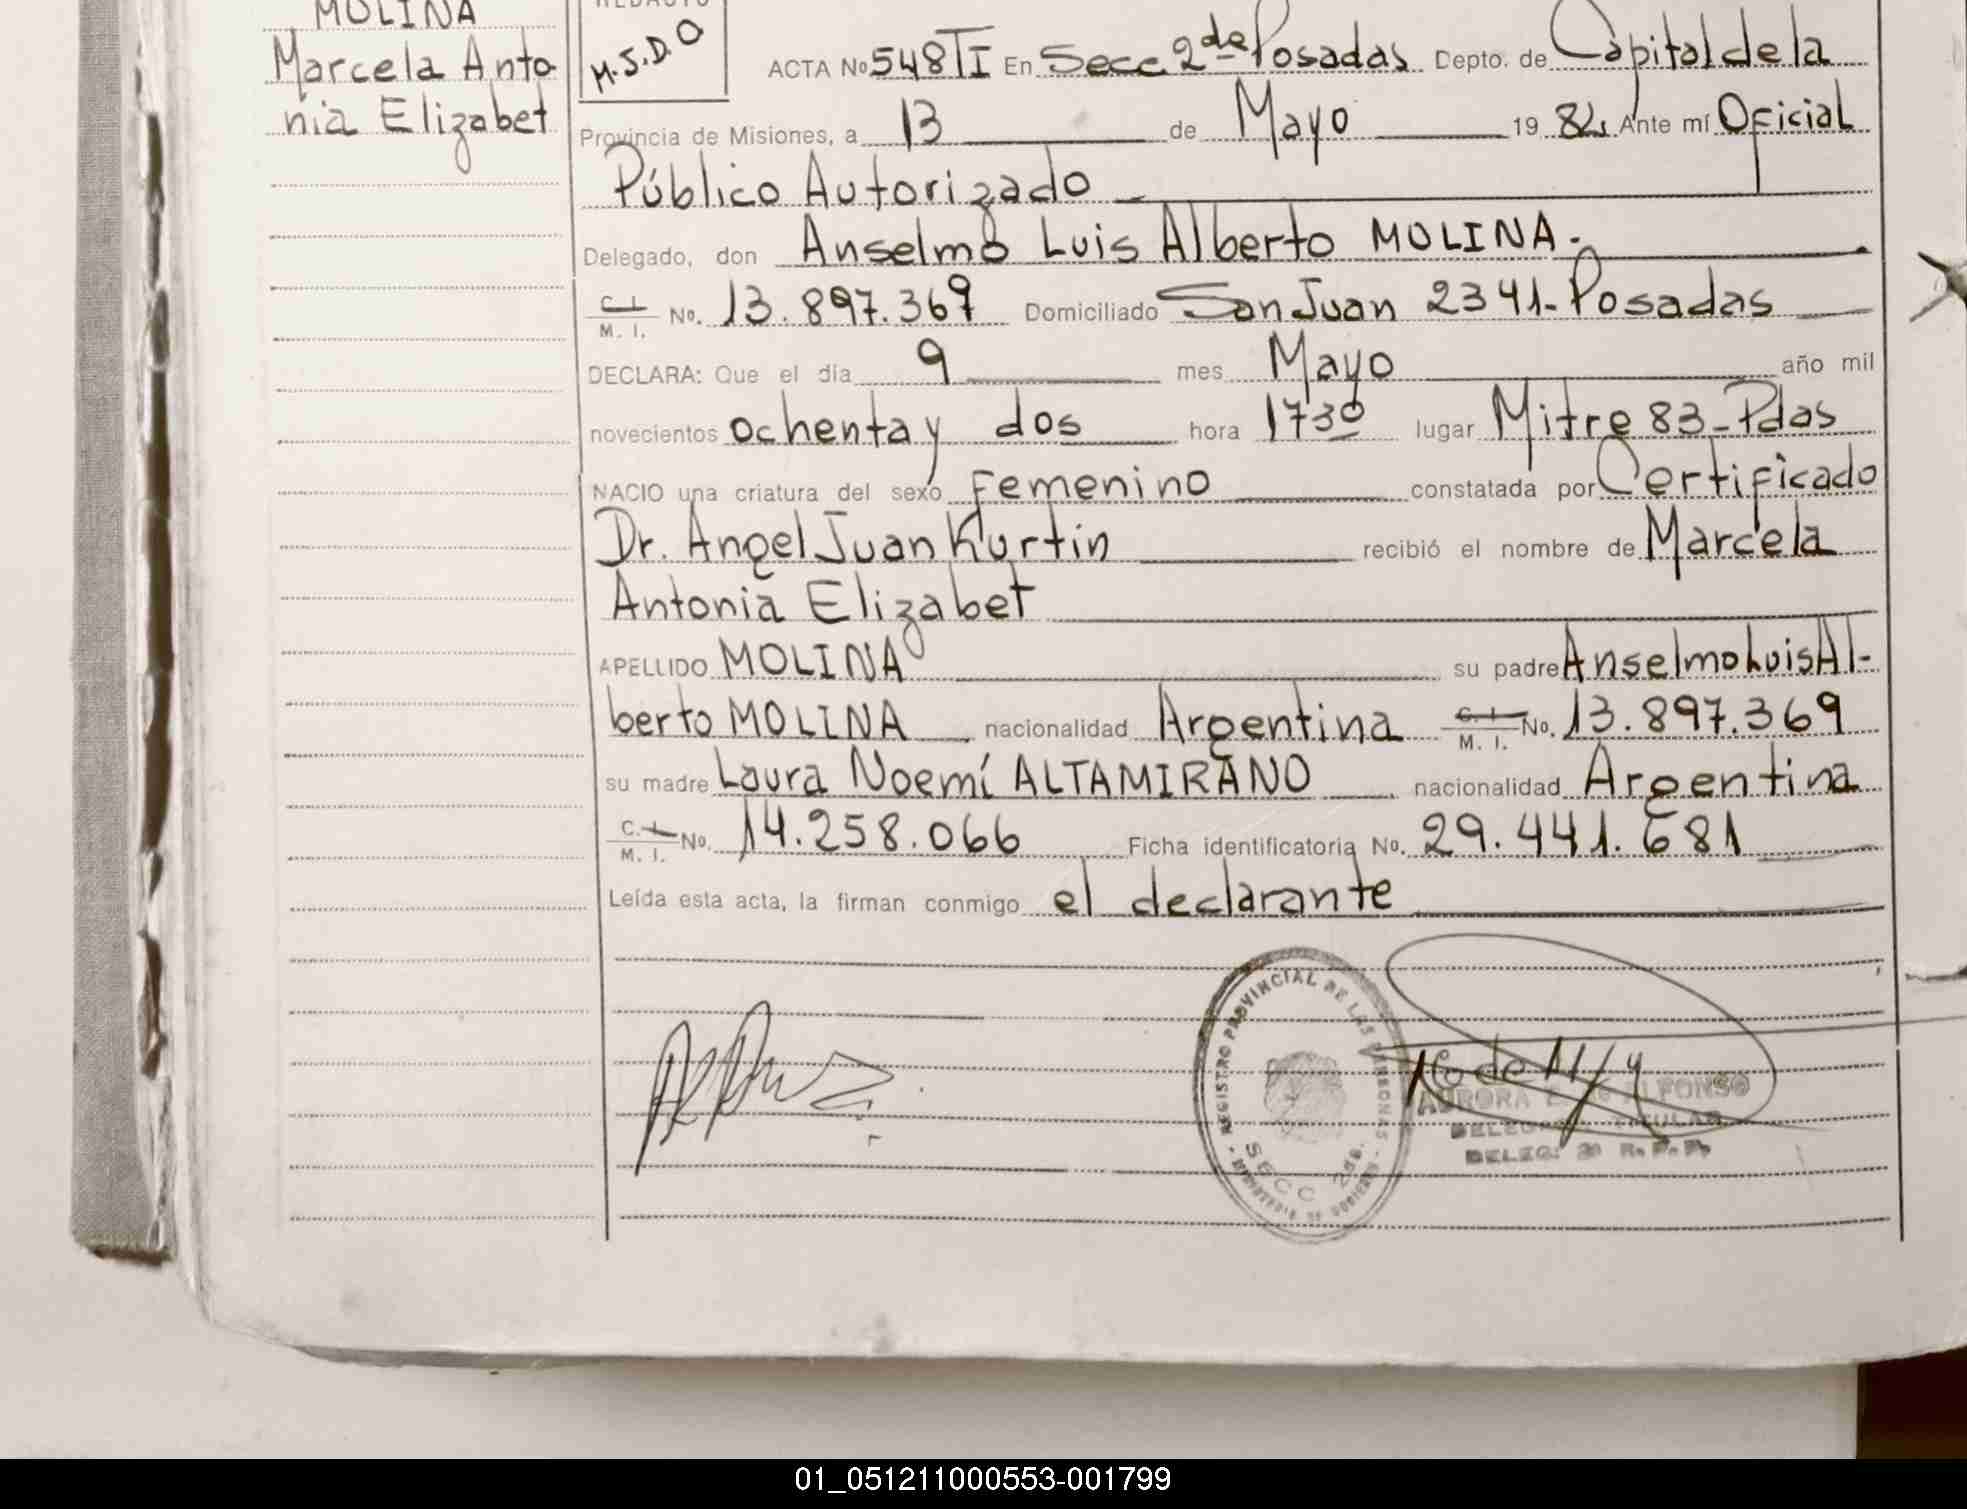 MOLINA
Marcela Anto
nia Elizabet
REDACTO
M.S.D.O
ACTA No 548 TI En Secc 2da Posadas Depto. de Capital de la
Provincia de Misiones, a 13 de Mayo 19 82, Ante mí Oficial
Público Autorizado
Delegado, don Anselmo Luis Alberto MOLINA.-
C. I. M. I. No. 13.897.369 Domiciliado San Juan 2341-Posadas
DECLARA: Que el día 9 mes Mayo año mil
novecientos ochenta y dos hora 1730 lugar Mitre 83-Pdas
NACIO una criatura del sexo Femenino constatada por Certificado
Dr. Angel Juan Kurtin recibió el nombre de Marcela
Antonia Elizabet
APELLIDO MOLINA su padre Anselmo Luis Al-
berto MOLINA nacionalidad Argentina C. I. M. I. No. 13.897.369
su madre Laura Noemí ALTAMIRANO nacionalidad Argentina
C. I. M. I. No. 14.258.066 Ficha identificatoria No. 29.441.681
Leída esta acta, la firman conmigo el declarante
REGISTRO PROVINCIAL DE LAS PERSONAS
SECC 2da.
MINISTERIO DE GOBIERNO
AURORA ALFONSO
TITULAR
DELEG. 2a R. P. P.
01_051211000553-001799